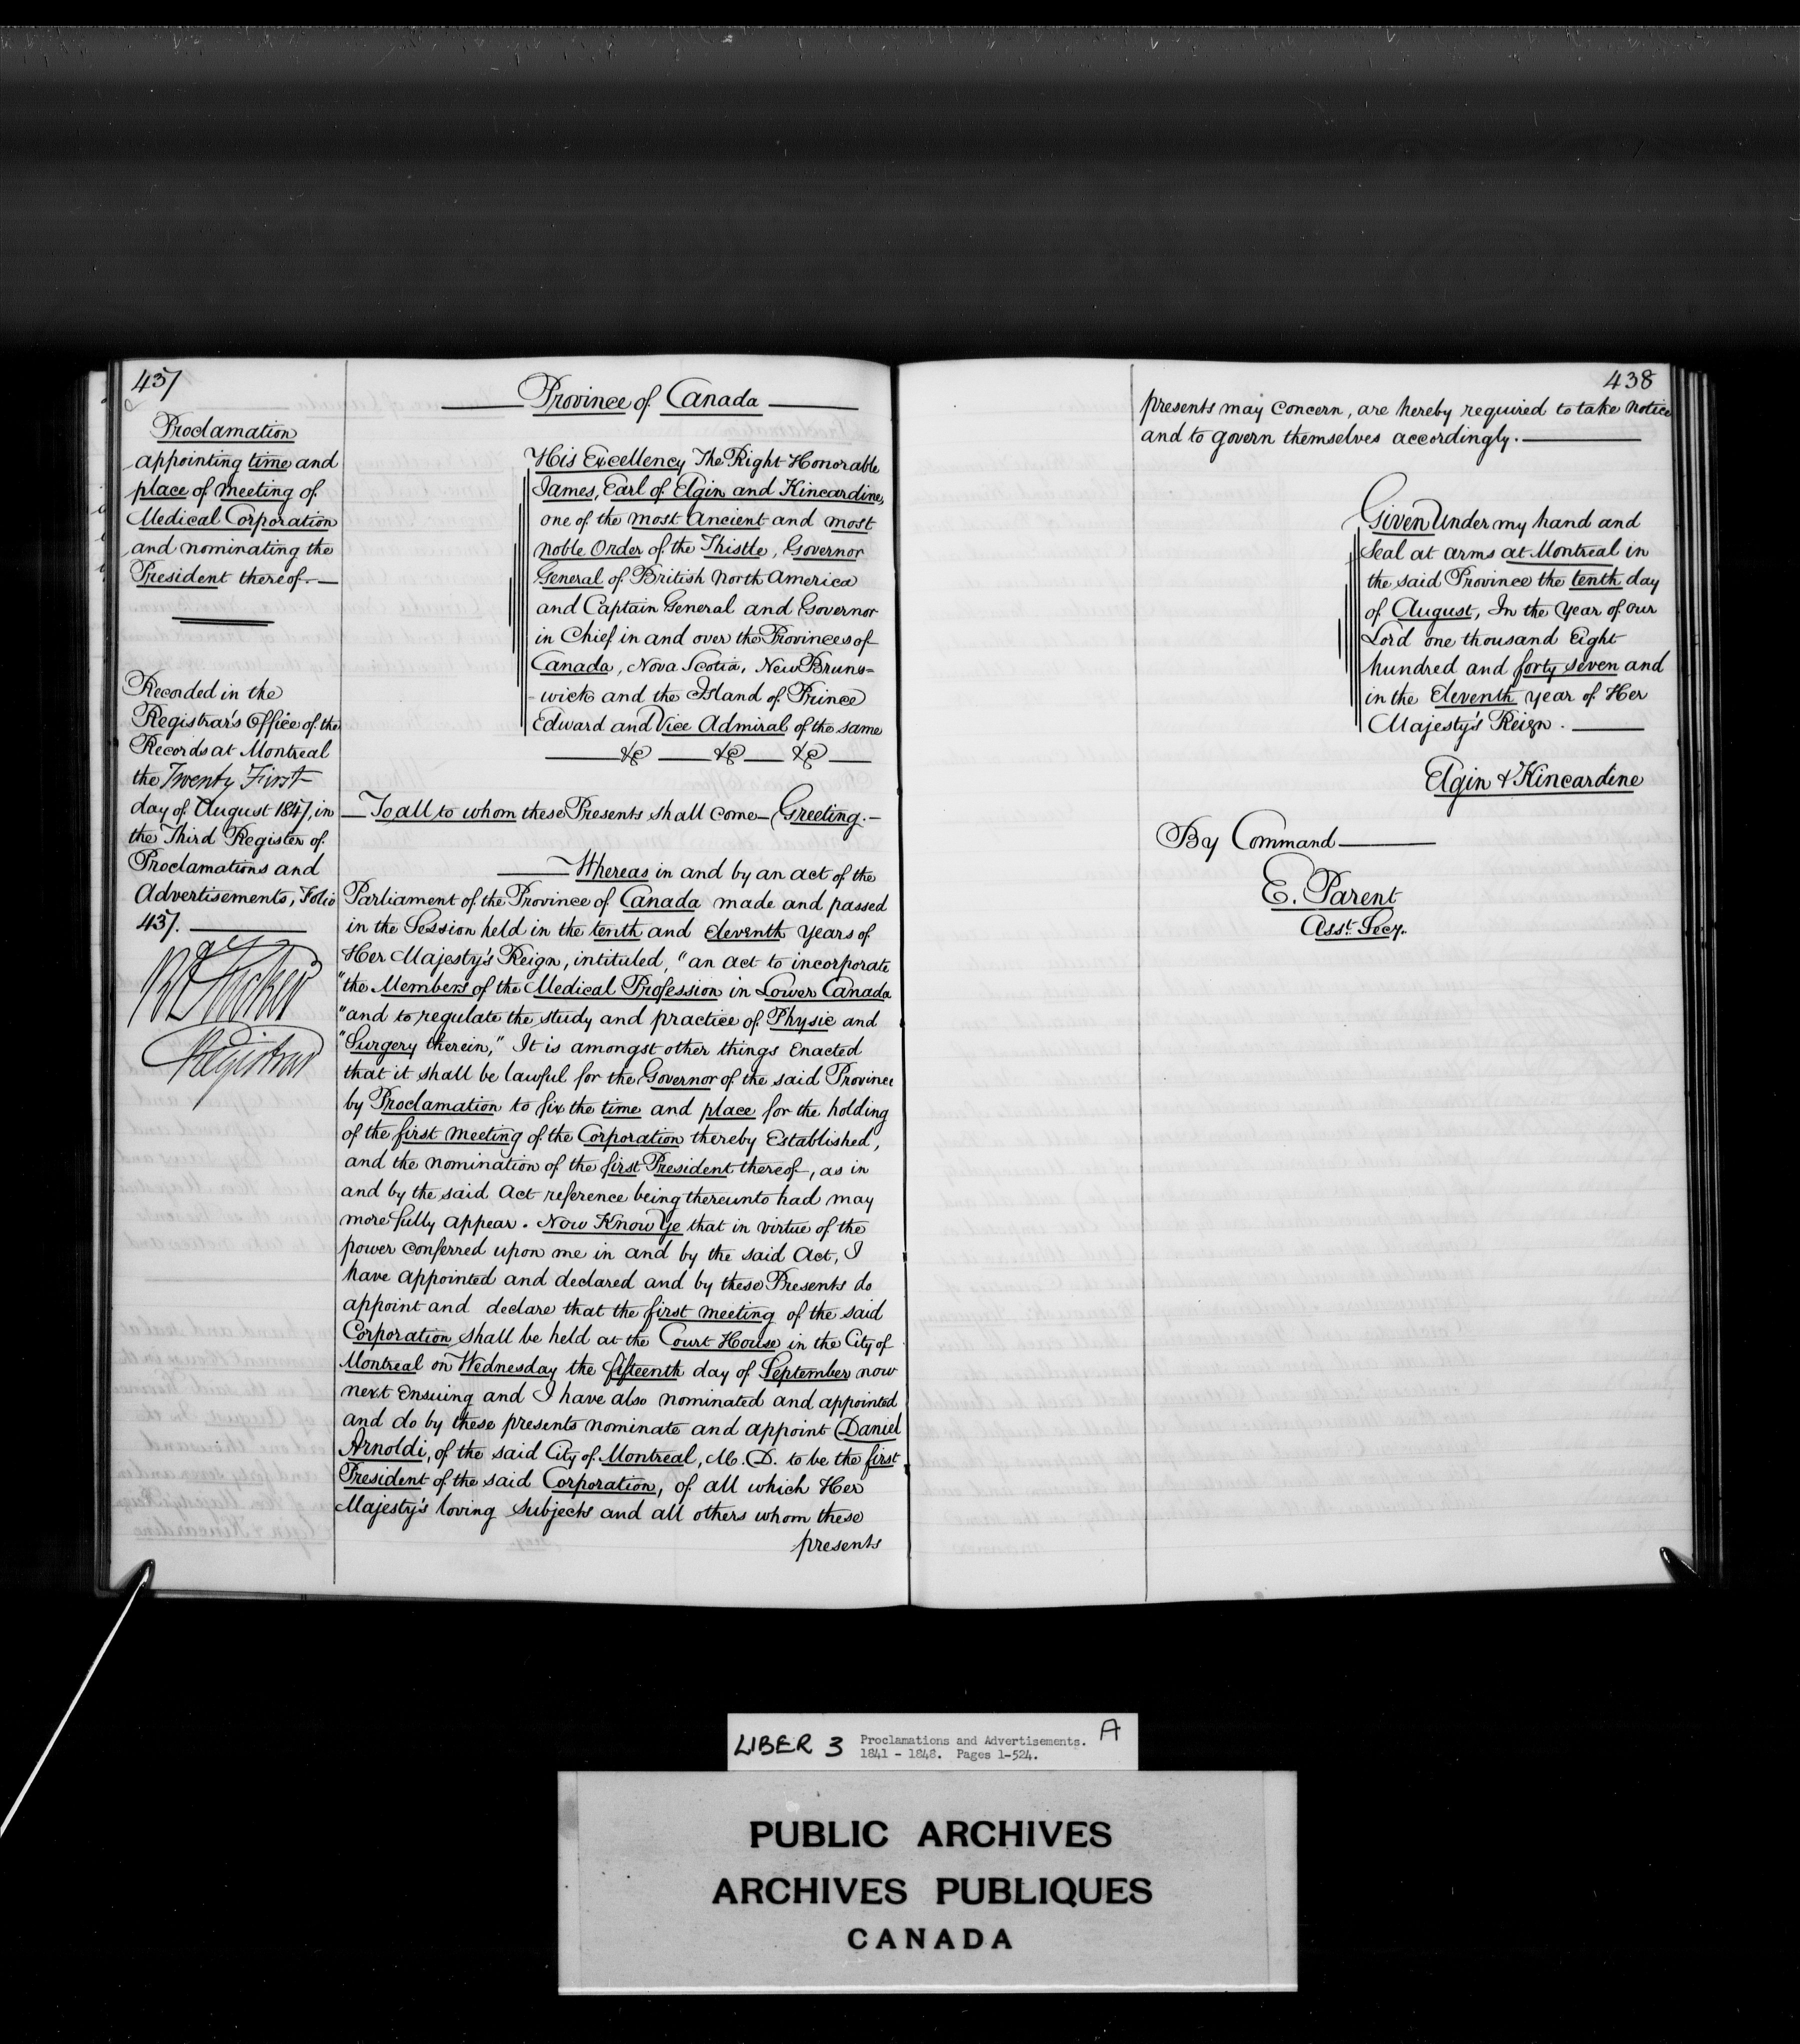 437
Proclamation
appointing time and
place of meeting of
Medical Corporation
and nominating the
President thereof.—
Recorded in the
Registrar's Office of the
Records at Montreal
the Twenty First
day of August 1847, in
the Third Register of
Proclamations and
Advertisements, Folio
437.
R A Tucker
Registrar
Province of Canada
His Excellency The Right Honorable
James, Earl of Elgin and Kincardine,
one of the most Ancient and most
noble Order of the Thistle, Governor
General of British North America
and Captain General and Governor
in Chief in and over the Provinces of
Canada, Nova Scotia, New Bruns=
-wick and the Island of Prince
Edward and Vice Admiral of the same
&c — &c — &c —
— To all to whom these Presents shall come — Greeting. —
— Whereas in and by an act of the
Parliament of the Province of Canada made and passed
in the Session held in the tenth and Eleventh years of
Her Majesty's Reign, intituled, "an act to incorporate
"the Members of the Medical Profession in Lower Canada
"and to regulate the study and practice of Physic and
"Surgery therein," It is amongst other things Enacted
that it shall be lawful for the Governor of the said Province
by Proclamation to fix the time and place for the holding
of the first meeting of the Corporation thereby Established,
and the nomination of the first President thereof, as in
and by the said Act reference being thereunto had may
more fully appear. Now Know Ye that in virtue of the
power conferred upon me in and by the said Act, I
have appointed and declared and by these Presents do
appoint and declare that the first meeting of the said
Corporation shall be held at the Court House in the City of
Montreal on Wednesday the fifteenth day of September now
next Ensuing and I have also nominated and appointed
and do by these presents nominate and appoint Daniel
Arnoldi, of the said City of Montreal, M. D. to be the first
President of the said Corporation, of all which Her
Majesty's loving Subjects and all others whom these
presents
438
presents may concern, are hereby required to take notice
and to govern themselves accordingly. —
Given Under my hand and
Seal at arms at Montreal in
the said Province the tenth day
of August, In the Year of our
Lord one thousand Eight
hundred and forty seven and
in the Eleventh year of Her
Majesty's Reign. —
Elgin & Kincardine
By Command —
E. Parent
Asst. Secy.
LIBER 3 Proclamations and Advertisements. A
1841 - 1848. Pages 1-524.
PUBLIC ARCHIVES
ARCHIVES PUBLIQUES
CANADA